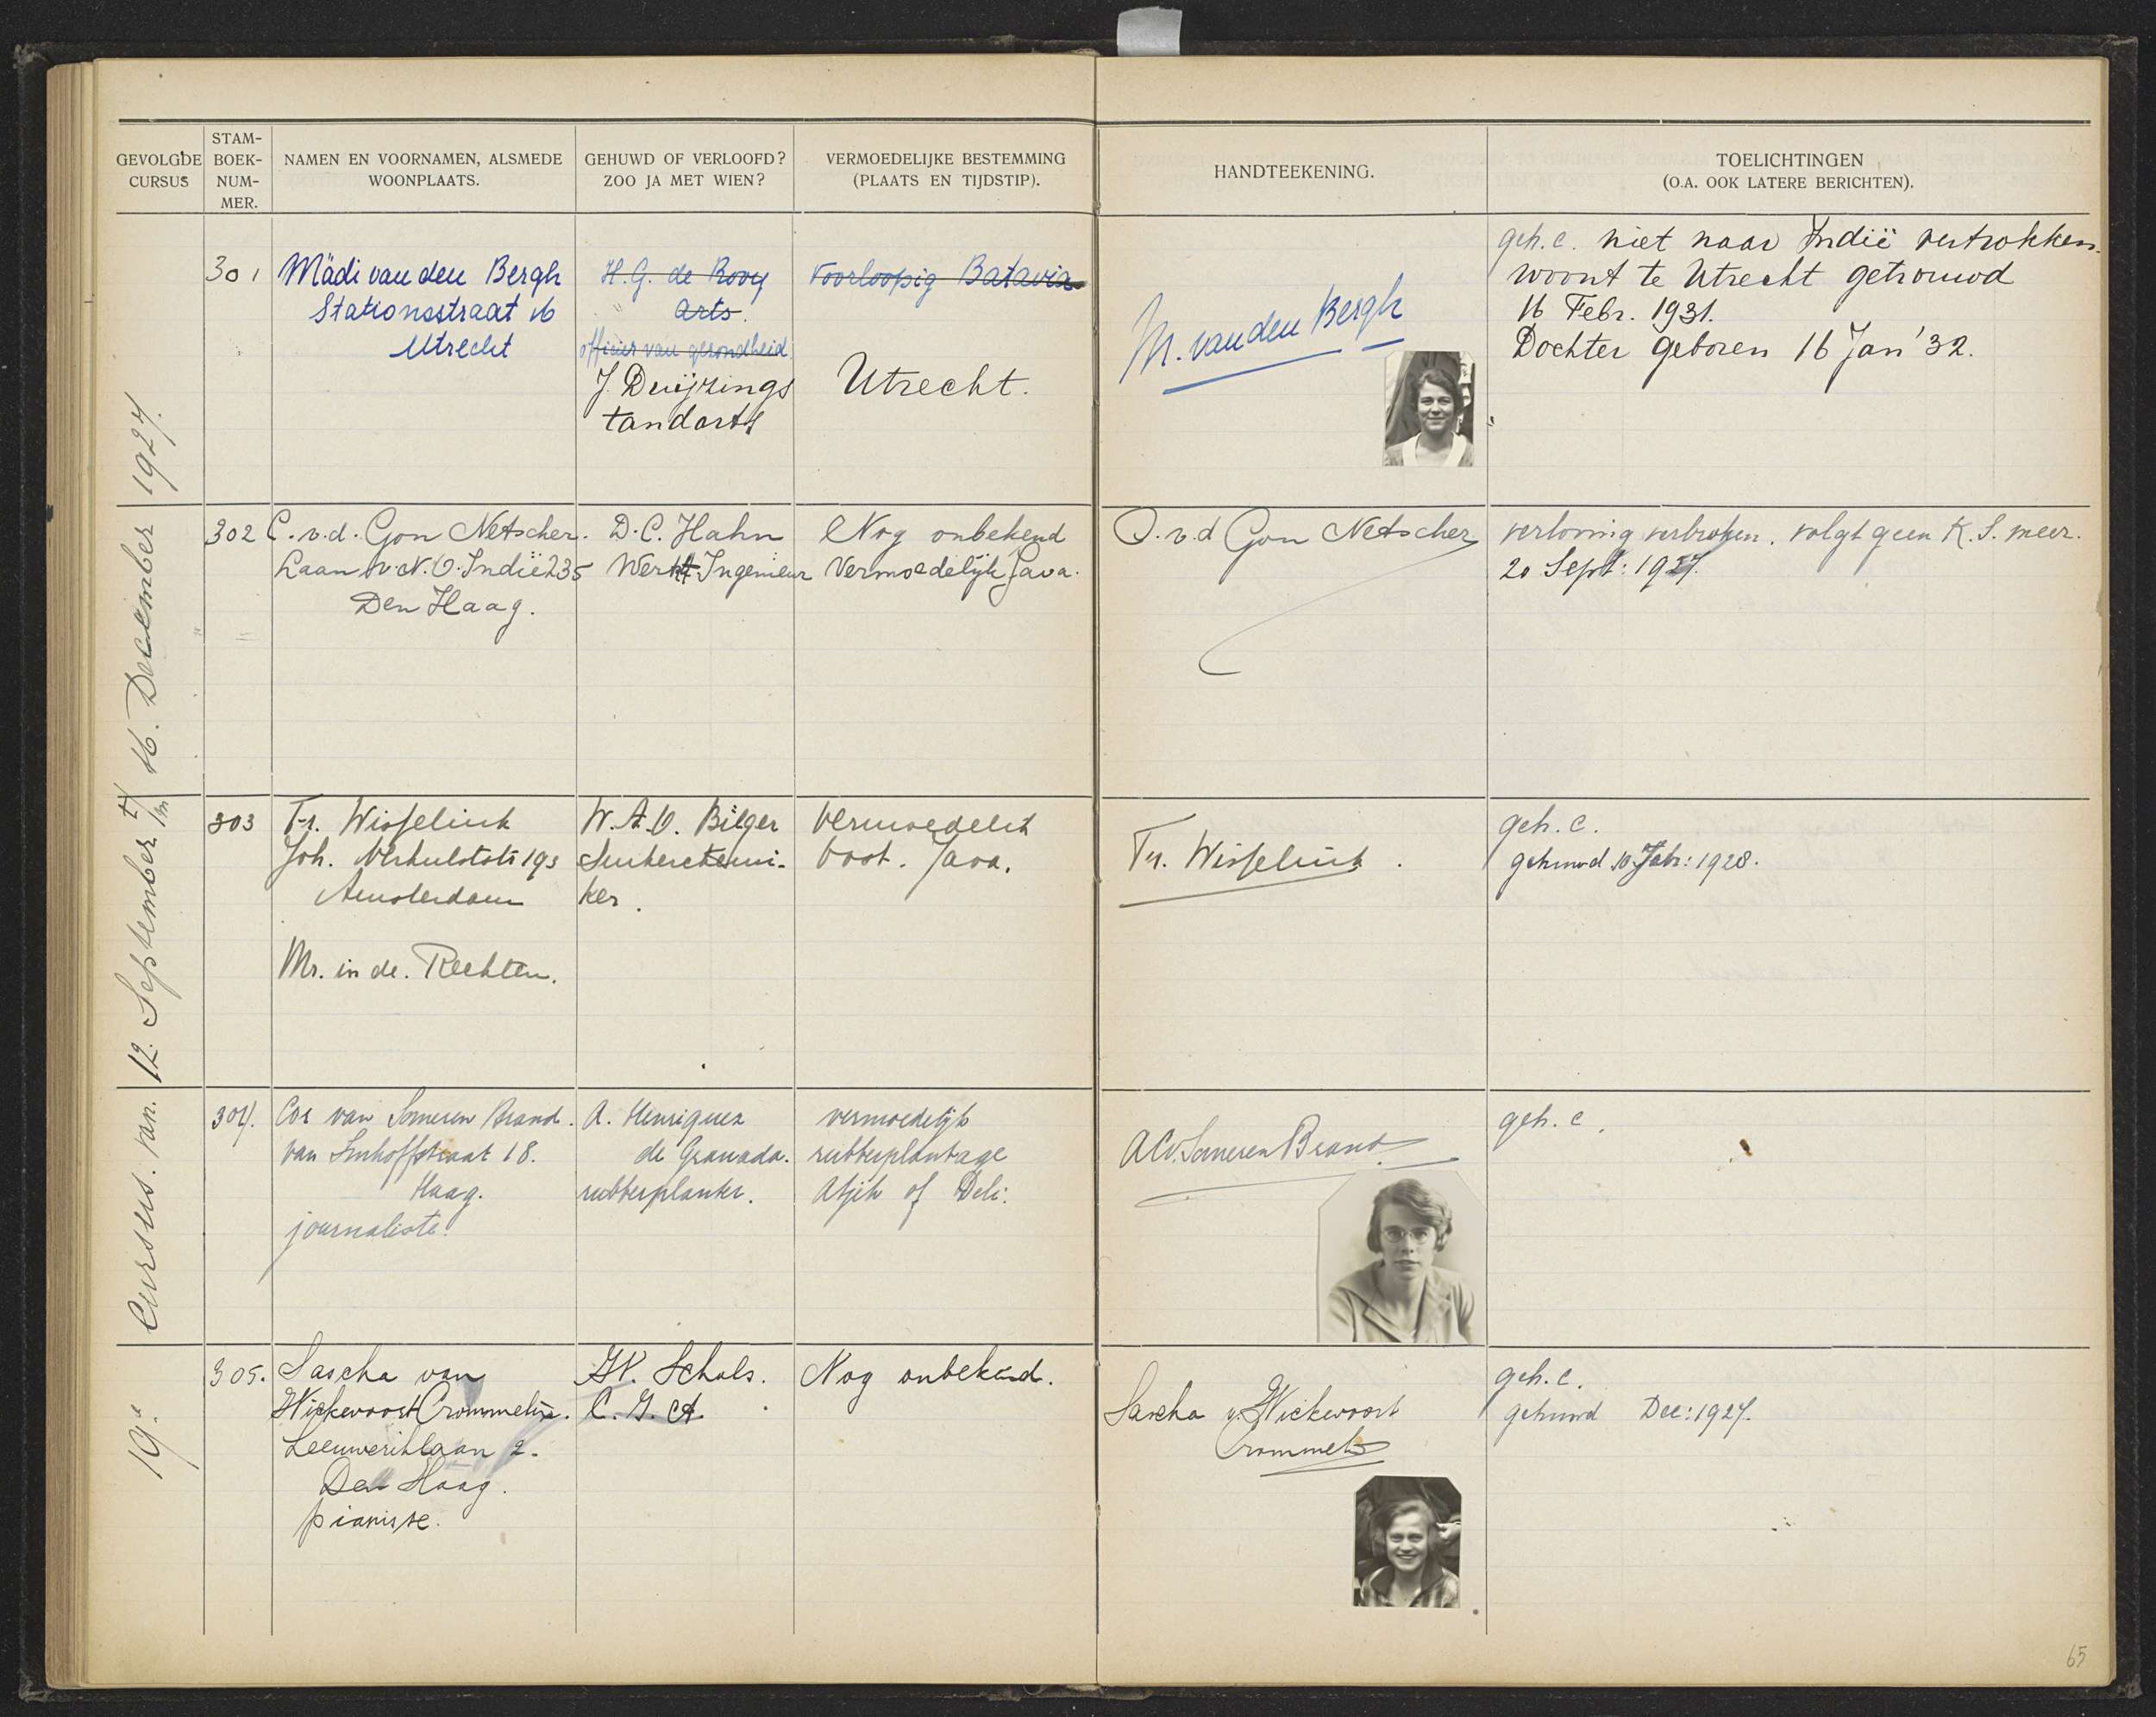 GEVOLGDE CURSUS
STAM-BOEK-NUM-MER.
NAMEN EN VOORNAMEN, ALSMEDE WOONPLAATS.
GEHUWD OF VERLOOFD? ZOO JA MET WIEN?
VERMOEDELIJKE BESTEMMING (PLAATS EN TIJDSTIP).
HANDTEEKENING.
TOELICHTINGEN
(O.A. OOK LATERE BERICHTEN).
19e Cursus. van. 12. September t/m 16. December 1927.
301
Mädi van den Bergh
Stationsstraat 16
Utrecht
H. G. de Rooy
arts.
officier van gezondheid
J. Duijzings
tandarts
Voorloopig Batavia
Utrecht.
M. van den Bergh
geh. c. niet naar Indië vertrokken.
woont te Utrecht getrouwd
16 Febr. 1931.
Dochter geboren 16 Jan '32.
302
C. v. d. Gon Netscher.
Laan v. N. O. Indië 235
Den Haag.
D. C. Hahn
Werkt. Ingenieur
Nog onbekend
Vermoedelijk Java.
v. d Gon Netscher
verloving verbroken. volgt geen K. S. meer.
20 Sept: 1927.
303
Tr. Wisselink
Joh. Verhulststr 193
Amsterdam
Mr. in de. Rechten.
W. A. O. Bilger
Suikerchemi-
ker.
Vermoedelik
Oost. Java.
Tr. Wisselink.
geh. c.
gehuwd 10 Febr: 1928.
304.
Cor van Someren Brand.
van Imhoffstraat 18.
Haag.
journaliste.
A. Henriquez
de Granada.
rubberplanter.
vermoedelijk
rubberplantage
Atjeh of Deli.
A C v. Someren Brand.
geh. c.
305.
Sascha van
Wickevoort Crommelin.
Leeuweriklaan 2.
Den Haag.
pianiste.
W. Schols.
C. G. A.
Nog onbekend.
Sascha v. Wickevoort
Crommelin
geh. c.
gehuwd Dec: 1927.
65